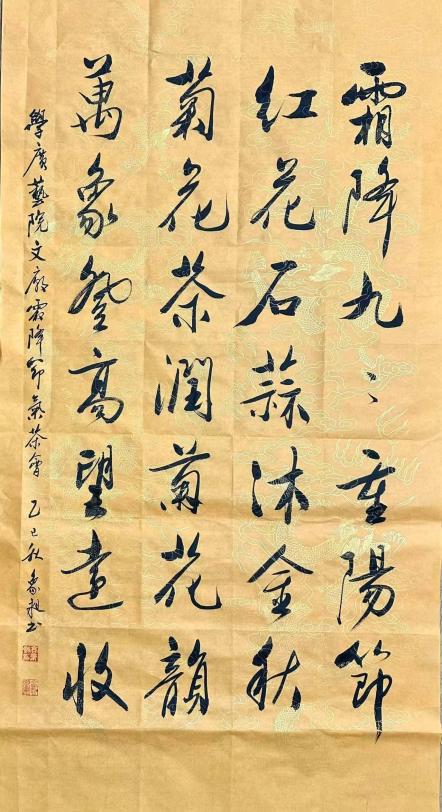 霜降九〻重陽節
红花石蒜沐金秋
菊花茶潤菊花韻
萬象登高望遠收
學廣藝院文廊霜降節氣茶會 乙巳秋 象根书